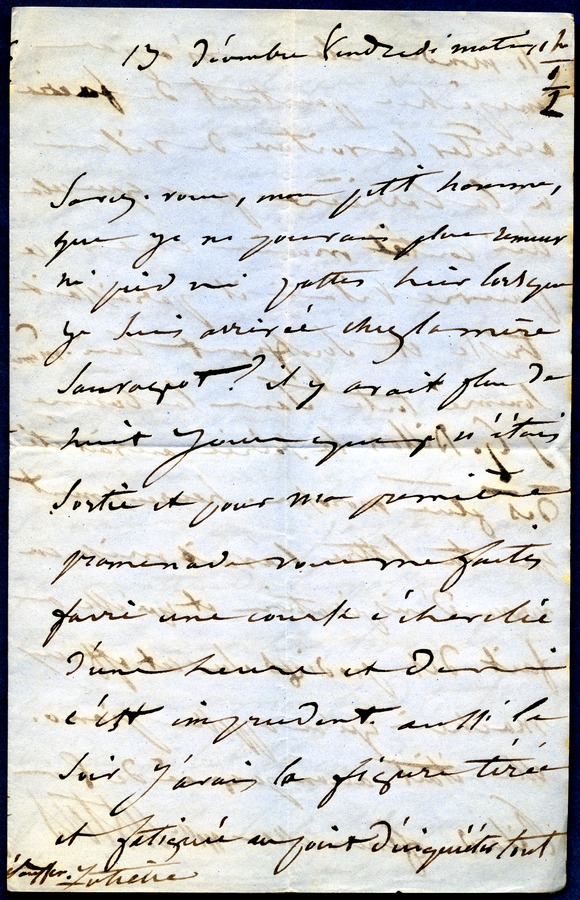 13 Décembre Vendredi matin, 11 h
1/2
Savez-vous, mon petit homme,
que je ne pouvais plus remuer
ni pied ni pattes hier lorsque
je suis arrivée chez la mère
Sauvageot ? il y avait plus de
huit jours que je n'étais
Sortie et pour ma première
promenade vous me faites
faire une course échevelée
d'une heure et demie
c'est imprudent. aussi le
Soir j'avais la figure tirée
et fatiguée au point d'inquiéter tout
étouffer. Juliette